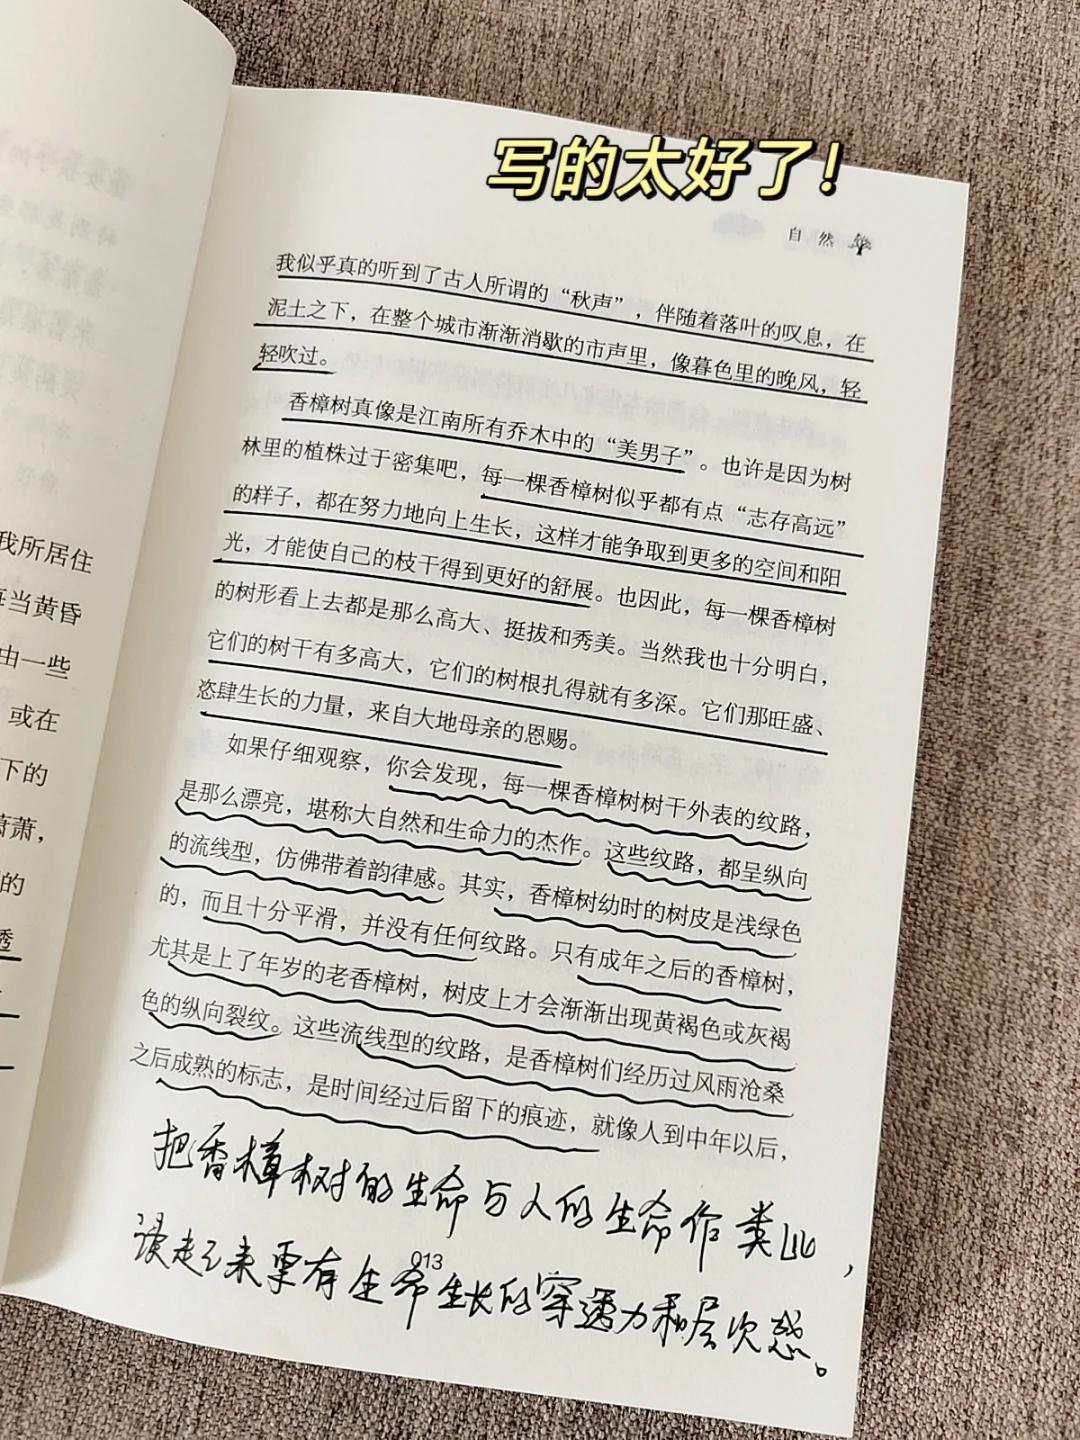 写的太好了！
自然
我所居住
每当黄昏
由一些
或在
下的
萧萧，
的
透
我似乎真的听到了古人所谓的“秋声”，伴随着落叶的叹息，在
泥土之下，在整个城市渐渐消歇的市声里，像暮色里的晚风，轻
轻吹过。
香樟树真像是江南所有乔木中的“美男子”。也许是因为树
林里的植株过于密集吧，每一棵香樟树似乎都有点“志存高远”
的样子，都在努力地向上生长，这样才能争取到更多的空间和阳
光，才能使自己的枝干得到更好的舒展。也因此，每一棵香樟树
的树形看上去都是那么高大、挺拔和秀美。当然我也十分明白，
它们的树干有多高大，它们的树根扎得就有多深。它们那旺盛、
恣肆生长的力量，来自大地母亲的恩赐。
如果仔细观察，你会发现，每一棵香樟树树干外表的纹路，
是那么漂亮，堪称大自然和生命力的杰作。这些纹路，都呈纵向
的流线型，仿佛带着韵律感。其实，香樟树幼时的树皮是浅绿色
的，而且十分平滑，并没有任何纹路。只有成年之后的香樟树，
尤其是上了年岁的老香樟树，树皮上才会渐渐出现黄褐色或灰褐
色的纵向裂纹。这些流线型的纹路，是香樟树们经历过风雨沧桑
之后成熟的标志，是时间经过后留下的痕迹，就像人到中年以后，
把香樟树的生命与人的生命作类比，
读起来更有生命生长的穿透力和层次感。
013